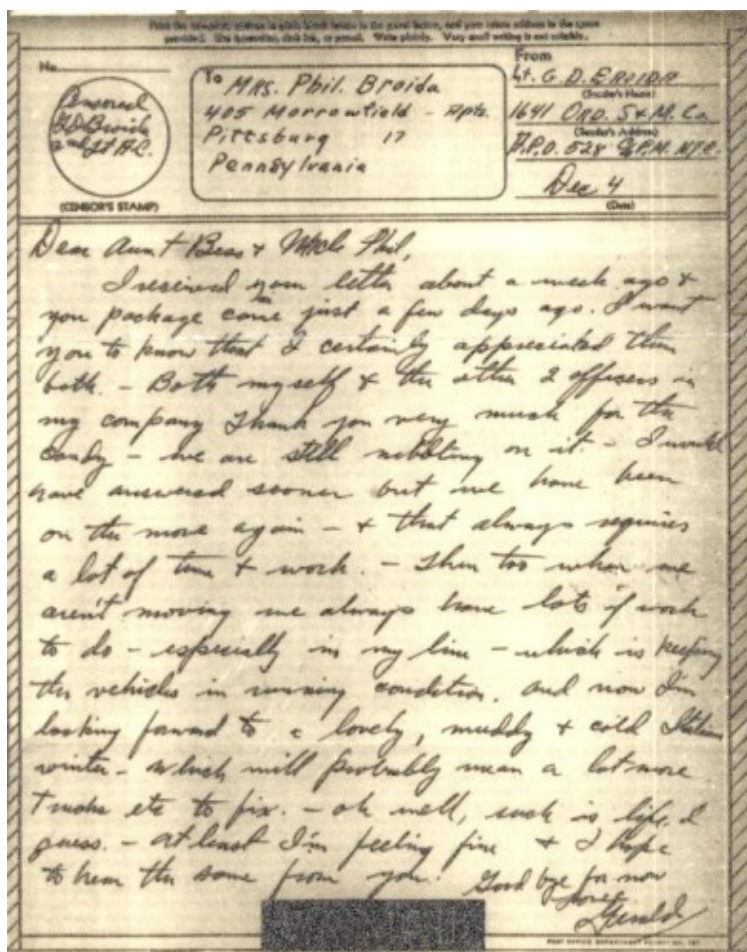 Print the complete address in plain block letters in the panel below, and your return address in the space
provided. Use typewriter, dark ink, or pencil. Write plainly. Very small writing is not suitable.
No.
Censored
G D Broida
2nd Lt A.C.
(CENSOR'S STAMP)
To
Mrs. Phil. Broida
405 Morrowfield - Apts.
Pittsburg 17
Pennsylvania
From
Lt. G. D. BROIDA
(Sender's Name)
1641 ORD. S & M. Co
(Sender's Address)
A.P.O. 528 % P.M. N.Y.C.
Dec 4
(Date)
Dear Aunt Bess & Uncle Phil,
I received your letter about a week ago &
you package came just a few days ago. I want
you to know that I certainly appreciated them
both. - Both myself & the other 2 officers in
my company thank you very much for the
candy - we are still nibbling on it. - I would
have answered sooner but we have been
on the move again - & that always requires
a lot of time & work. - Then too when we
aren't moving we always have lots of work
to do - especially in my line - which is keeping
the vehicles in running condition. And now I'm
looking forward to a lovely, muddy & cold Italian
winter - which will probably mean a lot more
trucks etc to fix. - oh well, such is life, I
guess. - at least I'm feeling fine & I hope
to hear the same from you. Good bye for now
Love
Gerald